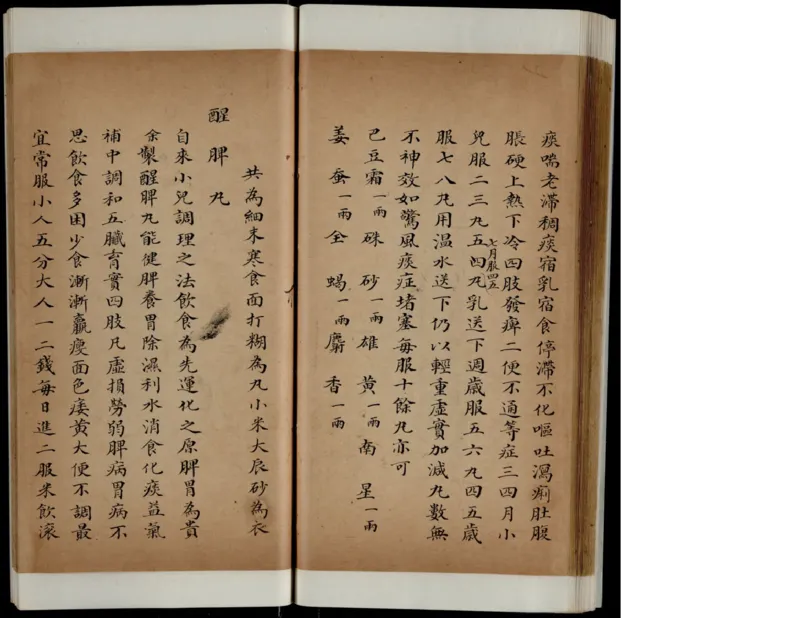 痰喘老滯稠痰宿乳宿食停滯不化嘔吐瀉痢肚腹
脹硬上熱下冷四肢發痺二便不通等症三四月小
兒服二三九五四丸乳送下週歲服五六九四五歲
七月服四五
服七八丸用温水送下仍以輕重虛實加減丸數無
不神效如驚風痰症堵塞每服十餘丸亦可
巴豆霜一兩 硃砂一兩 雄黃一兩 南星一兩
姜蚕一兩 全蝎一兩 麝香一兩
共為細末寒食面打糊為丸小米大辰砂為衣
醒脾丸
自來小兒調理之法飲食為先運化之原脾胃為貴
余製醒脾丸能健脾養胃除濕利水消食化痰益氣
補中調和五臟育實四肢凡虛損勞弱脾病胃病不
思飲食多困少食漸漸羸瘦面色痿黃大便不調最
宜常服小人五分大人一二錢每日進二服米飲滾